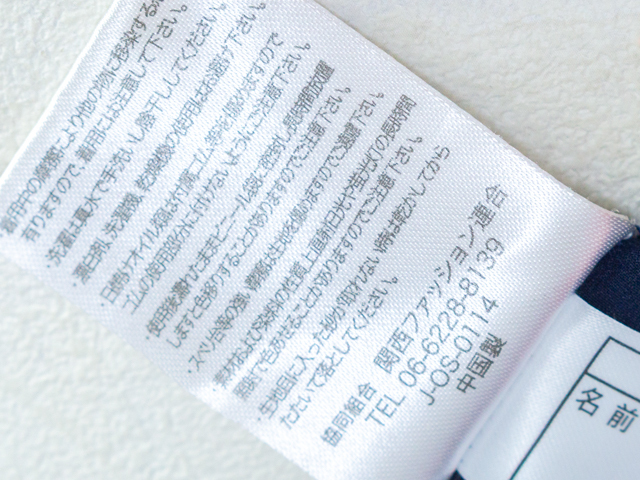 着用中の摩擦により他の物に移染する
有りますので、着用には注意して下さい。
・洗濯は真水で手洗いし陰干ししてください。
・漂白剤、洗濯機、乾燥機の使用はお避け下さい。
・日焼けオイル類は付属ゴム等を傷めますので
ゴムの使用部分に付けないようにご注意下さい。
・使用後濡れたままビニール袋に密封し長時間放置
しますと色移りすることがありますのでご注意下さい。
・スベリ台等の強い摩擦は生地を傷めますのでご遠慮下さい。
・素材および染料の性質上直射日光や蛍光灯の長時間
照射で色あせることがありますのでご注意下さい。
・生地目に入った砂が取れない時は乾かしてから
たたいて落としてください。
協同組合 関西ファッション連合
TEL 06-6228-8139
J-OS-0114
中国製
名前